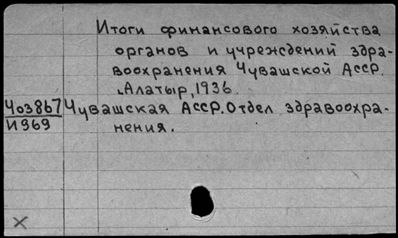 Итоги финансового хозяйства
органов и учреждений здра-
воохранения Чувашской АССР.
Алатыр, 1936.
Чоз867 Чувашская АССР. Отдел здравоохра-
И969 нения.